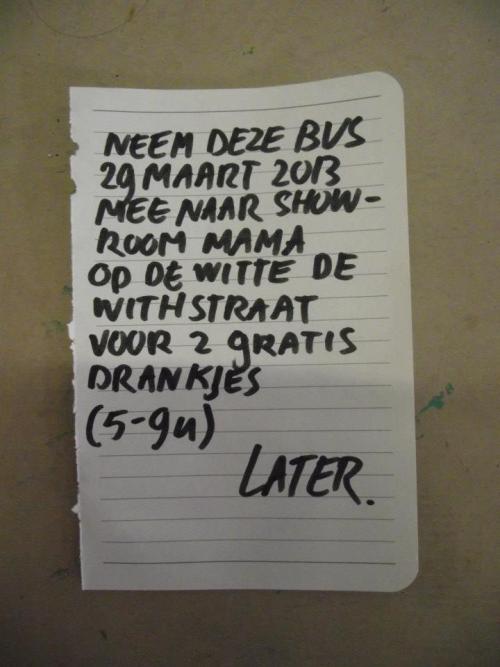 NEEM DEZE BUS
29 MAART 2013
MEE NAAR SHOW-
ROOM MAMA
OP DE WITTE DE
WITHSTRAAT
VOOR 2 GRATIS
DRANKJES
(5-9u)
LATER.